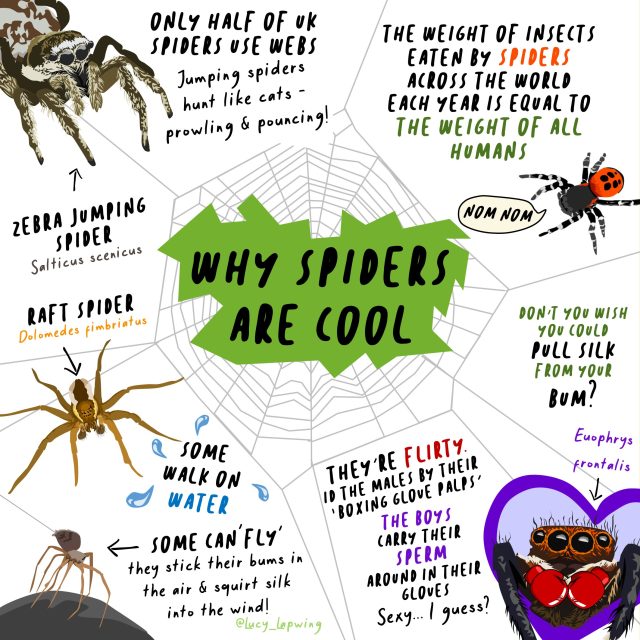 ONLY HALF OF UK
SPIDERS USE WEBS
Jumping spiders
hunt like cats -
prowling & pouncing!
THE WEIGHT OF INSECTS
EATEN BY SPIDERS
ACROSS THE WORLD
EACH YEAR IS EQUAL TO
THE WEIGHT OF ALL
HUMANS
NOM NOM
ZEBRA JUMPING
SPIDER
Salticus scenicus
WHY SPIDERS
ARE COOL
RAFT SPIDER
Dolomedes fimbriatus
DON'T YOU WISH
YOU COULD
PULL SILK
FROM YOUR
BUM?
SOME
WALK ON
WATER
THEY'RE FLIRTY.
ID THE MALES BY THEIR
'BOXING GLOVE PALPS'
THE BOYS
CARRY THEIR
SPERM
AROUND IN THEIR
GLOVES
Sexy... I guess?
Euophrys
frontalis
SOME CAN 'FLY'
they stick their bums in
the air & squirt silk
into the wind!
@Lucy_Lapwing